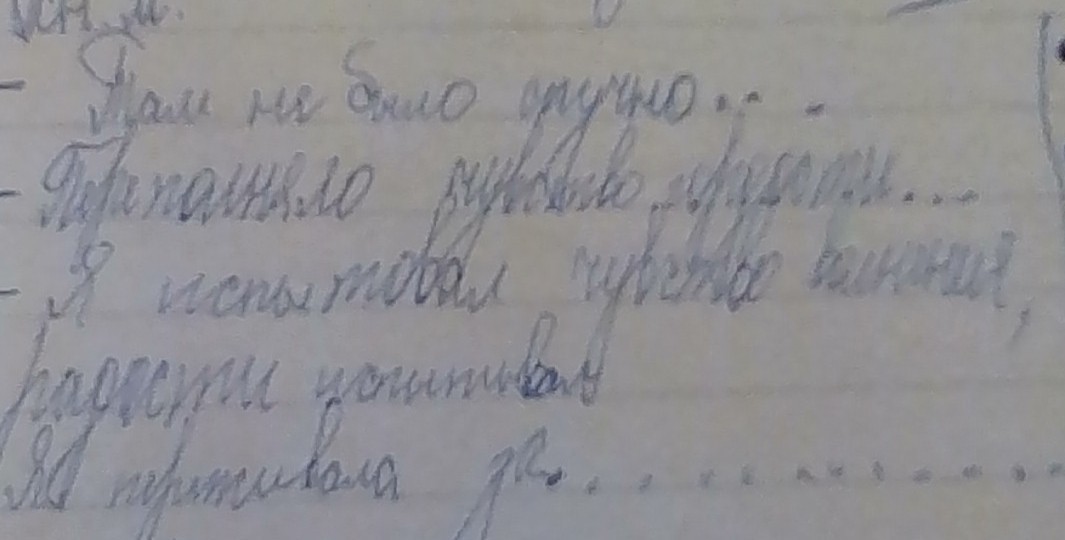 - Там не было скучно...
- Переполняло чувство радости...
- Я испытовал чувство волнения,
радости испытывал
Я переживала за...........